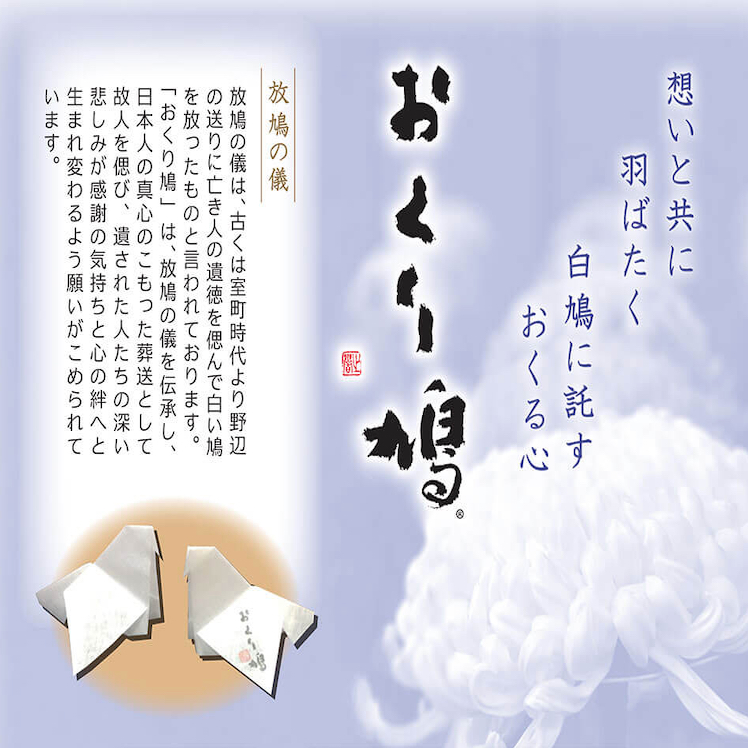 想いと共に
羽ばたく
白鳩に託す
おくる心
おくり鳩
®
放鳩の儀
放鳩の儀は、古くは室町時代より野辺
の送りに亡き人の遺徳を偲んで白い鳩
を放ったものと言われております。
「おくり鳩」は、放鳩の儀を伝承し、
日本人の真心のこもった葬送として
故人を偲び、遺された人たちの深い
悲しみが感謝の気持ちと心の絆へと
生まれ変わるよう願いがこめられて
います。
おくり鳩